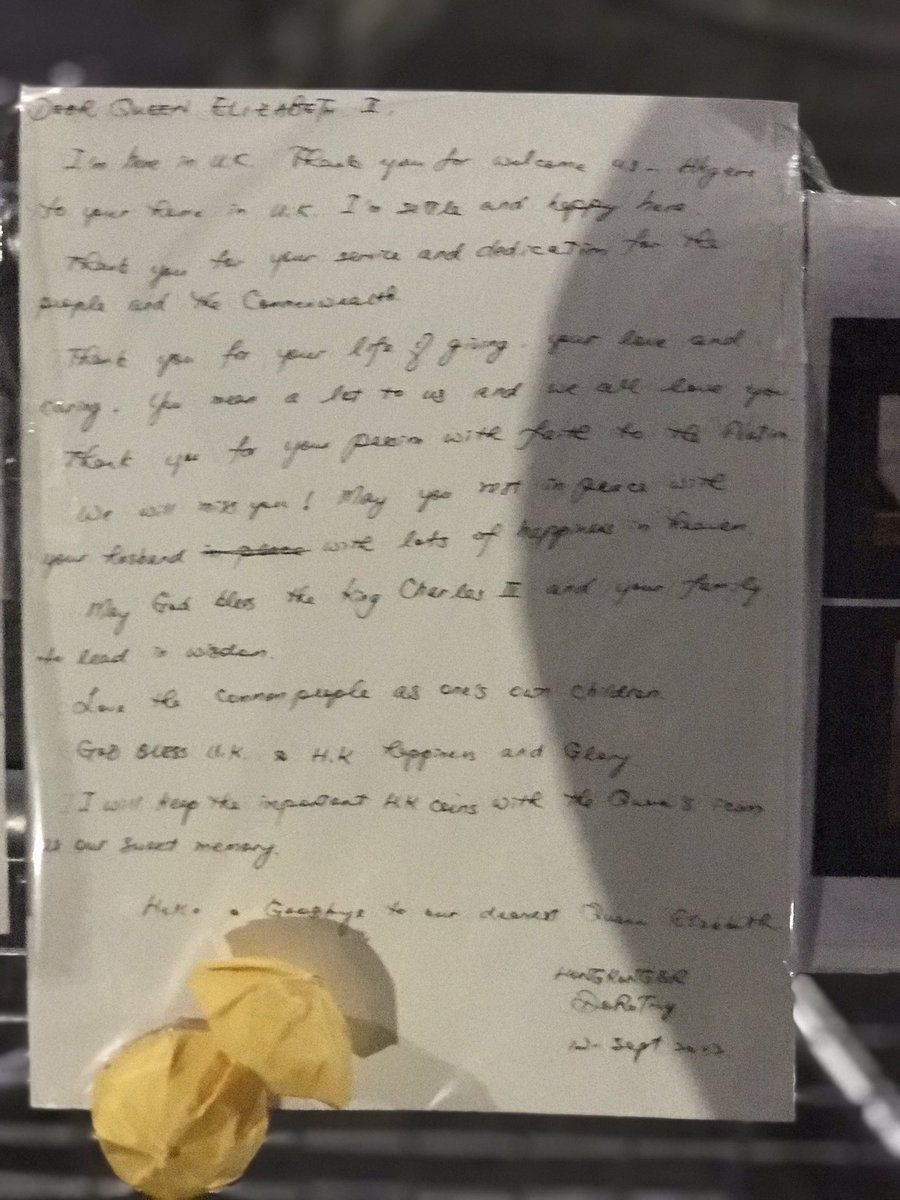 DEAR QUEEN ELIZABETH II,
I'm here in U.K. Thank you for welcome us -
to your home in U.K. I'm settle and happy here.
Thank you for your service and dedication for the
people and the Commonwealth
Thank you for your life of giving. your love and
caring. You mean a lot to us and we all love you
Thank you for your passion with faith to the Nation
We will miss you! May you rest in peace with
your husband in peace with lots of happiness in heaven.
May God bless the King Charles III and your family
to lead in wisdom.
Love the common people as one's own children.
GOD BLESS U.K. & H.K Happiness and Glory
I will keep the important HK coins with the Queen's
as our sweet memory.
Goodbye to our dearest Queen Elizabeth
HONGKONGER
DOROTHY
Sept